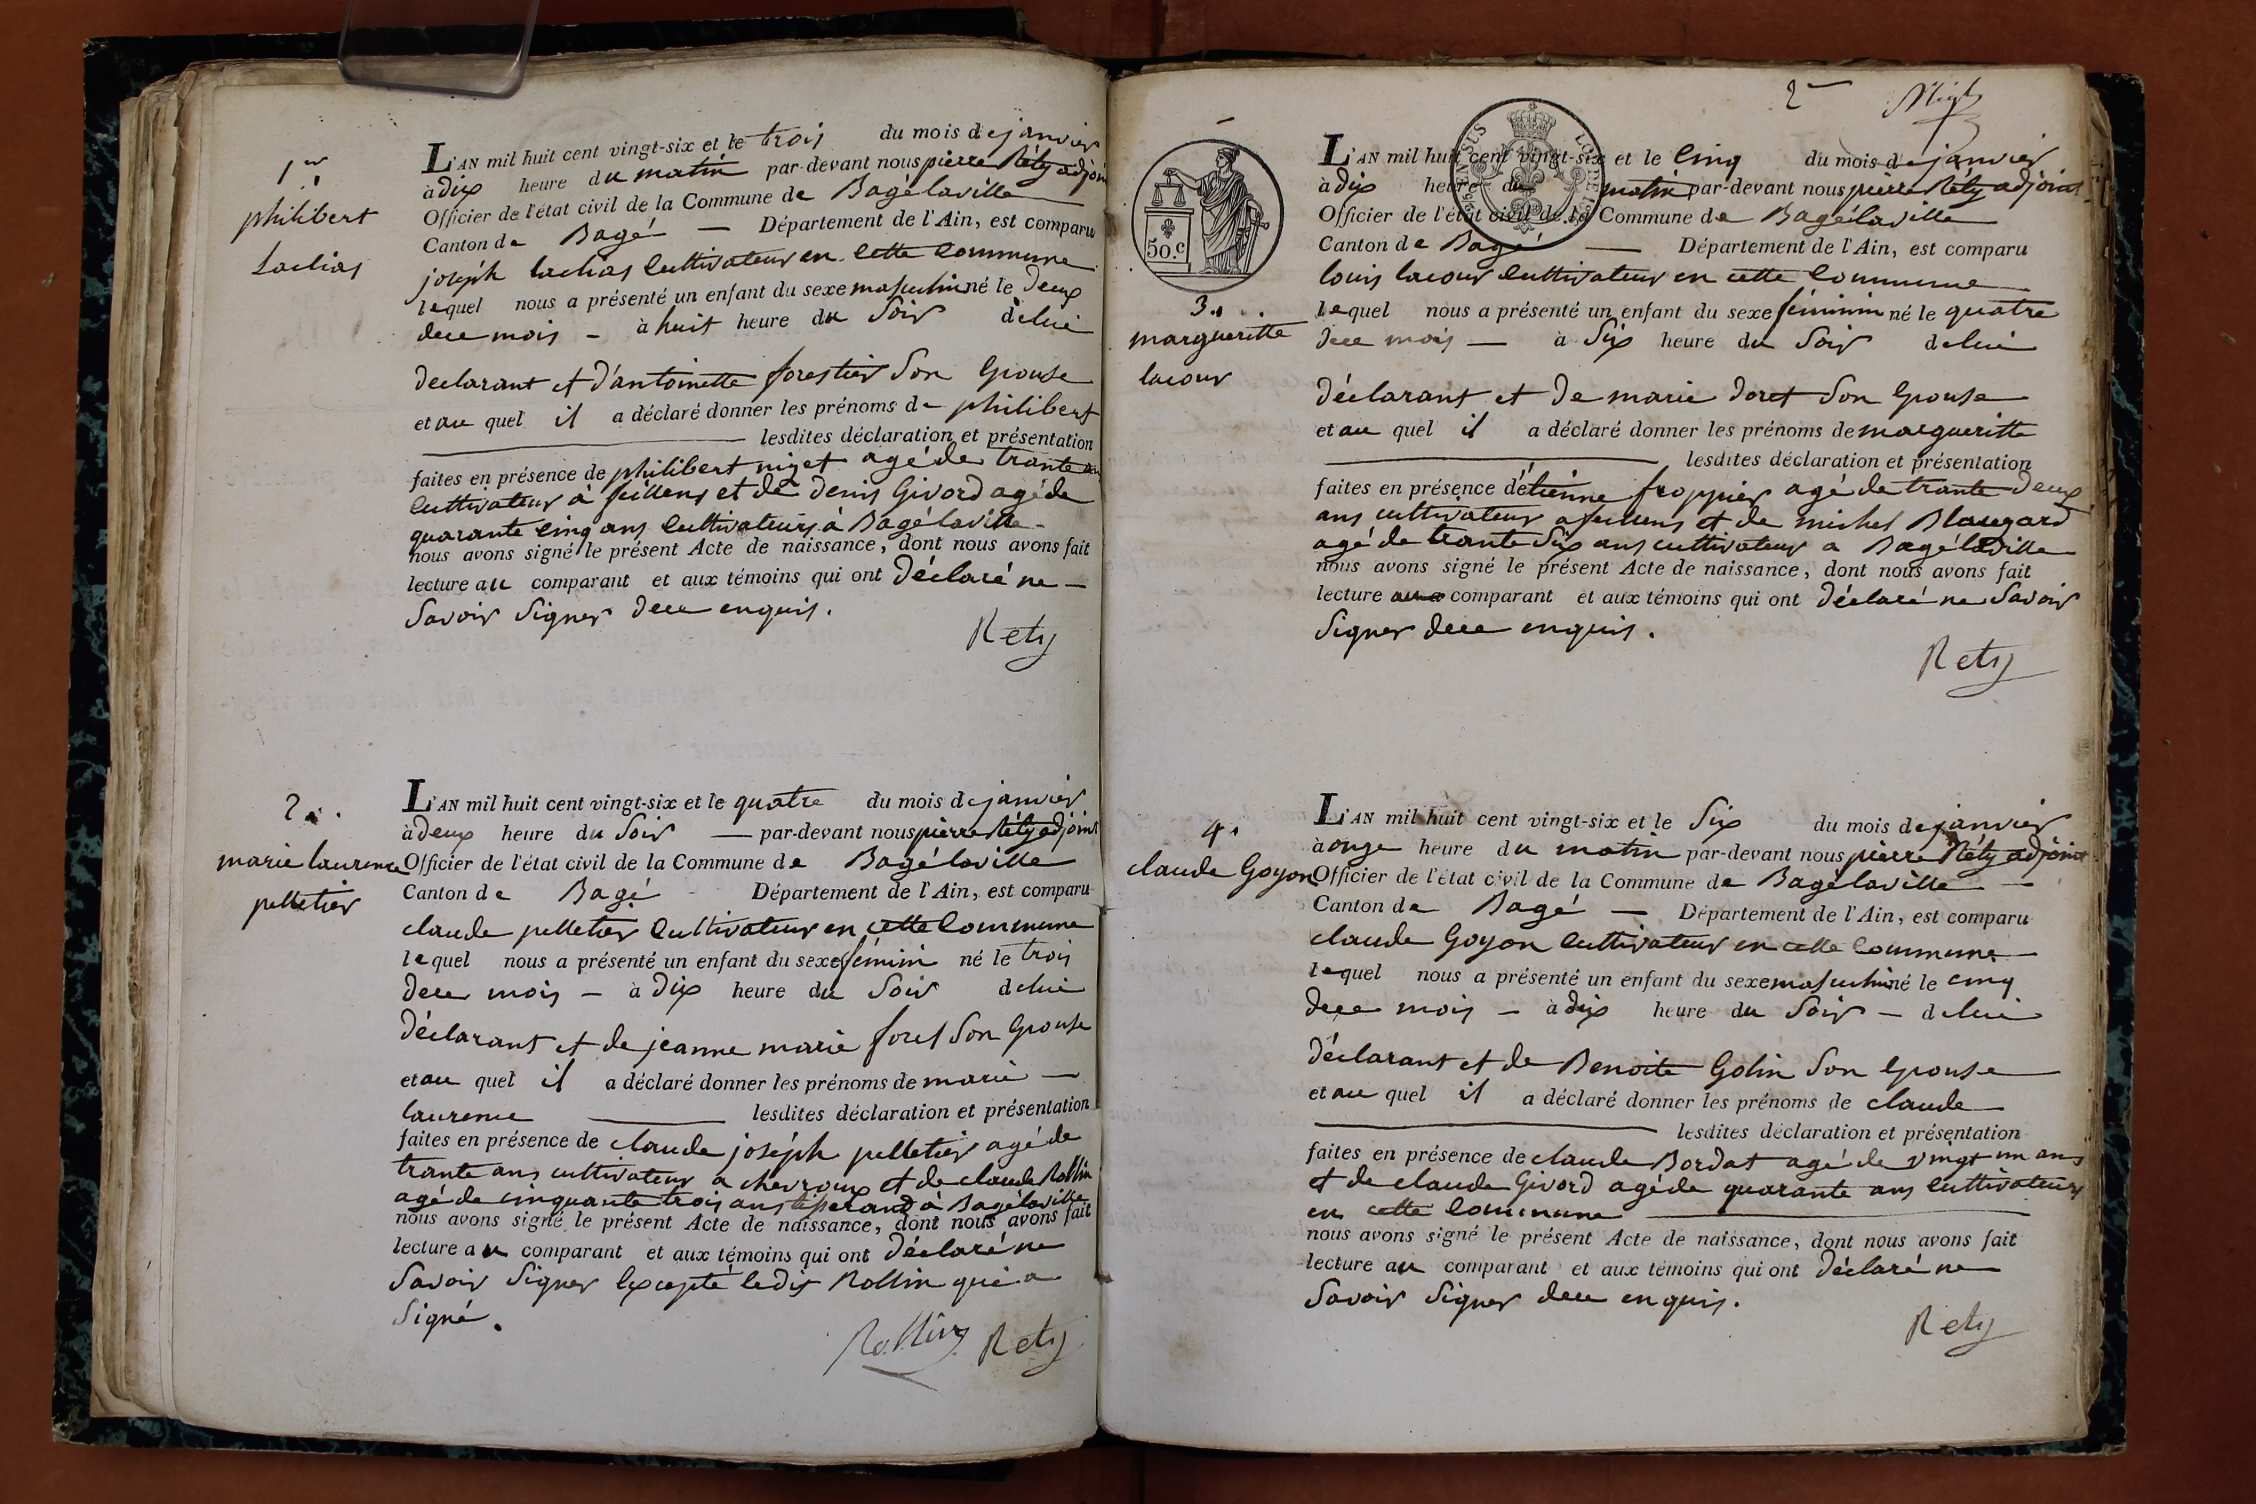 1er
philibert
Lachias
L'AN mil huit cent vingt-six et le trois du mois de janvier
à dix heure du matin par-devant nous pierre Réty adjoint
Officier de l'état civil de la Commune de Bagélaville
Canton de Bagé — Département de l'Ain, est comparu
joséph lachias Cultivateur en cette Commune
lequel nous a présenté un enfant du sexe masculin né le deux
dece mois — à huit heure du Soir delui
declarant et d'antoinette forestier Son Epouse
et au quel il a déclaré donner les prénoms de philibert
lesdites déclaration et présentation
faites en présence de philibert nizet agé de trante ans
Cultivateur à feillens et de denis Givord agé de
quarante Cinq ans Cultivateurs à Bagélaville
nous avons signé le présent Acte de naissance, dont nous avons fait
lecture au comparant et aux témoins qui ont déclaré ne —
Savoir Signer dece enquis.
Rety
2..
marie laurence
pelletier
L'AN mil huit cent vingt-six et le quatre du mois de janvier
à deux heure du Soir — par-devant nous pierre Réty adjoint
Officier de l'état civil de la Commune de Bagélaville
Canton de Bagé Département de l'Ain, est comparu
claude pelletier Cultivateur en cette Commune
lequel nous a présenté un enfant du sexe féminin né le trois
dece mois — à dix heure du Soir delui
déclarant et de jeanne marie forel Son Epouse
et au quel il a déclaré donner les prénoms de marie —
laurence lesdites déclaration et présentation
faites en présence de claude joséph pelletier agé de
trante ans cultivateur a chevroux et de claude Rollin
agé de cinquante trois ans à Bagélaville
nous avons signé le présent Acte de naissance, dont nous avons fait
lecture au comparant et aux témoins qui ont déclaré ne
Savoir Signer Excepté ledit Rollin qui a
Signé.
Rollin Rety
2me
50.c
3..
margueritte
lacour
L'AN mil huit cent vingt-six et le Cinq du mois de janvier
à dix heure du matin par-devant nous pierre Réty adjoint
Officier de l'état civil de la Commune de Bagélaville
Canton de Bagé — Département de l'Ain, est comparu
louis lacour Cultivateur en cette Commune
lequel nous a présenté un enfant du sexe féminin né le quatre
dece mois — à Six heure du Soir delui
déclarant et de marie doret Son Epouse
et au quel il a déclaré donner les prénoms de margueritte
lesdites déclaration et présentation
faites en présence d'étienne froppier agé de trante deux
ans cultivateur a feillens et de michel Blaugard
agé de trante Six ans cultivateur a Bagélaville
nous avons signé le présent Acte de naissance, dont nous avons fait
lecture au comparant et aux témoins qui ont déclaré ne Savoir
Signer dece enquis.
Rety
4.
claude Goyon
L'AN mil huit cent vingt-six et le Six du mois de janvier
à onze heure du matin par-devant nous pierre Réty adjoint
Officier de l'état civil de la Commune de Bagélaville —
Canton de Bagé — Département de l'Ain, est comparu
claude Goyon Cultivateur en cette Commune
lequel nous a présenté un enfant du sexe masculin né le cinq
dece mois — à dix heure du Soir — delui
déclarant et de Benoite Golin Son Epouse
et au quel il a déclaré donner les prénoms de claude
lesdites déclaration et présentation
faites en présence de claude Bordat agé de vingt un ans
et de claude Givord agé de quarante ans Cultivateurs
en cette Commune
nous avons signé le présent Acte de naissance, dont nous avons fait
lecture au comparant et aux témoins qui ont déclaré ne
Savoir Signer dece enquis.
Rety